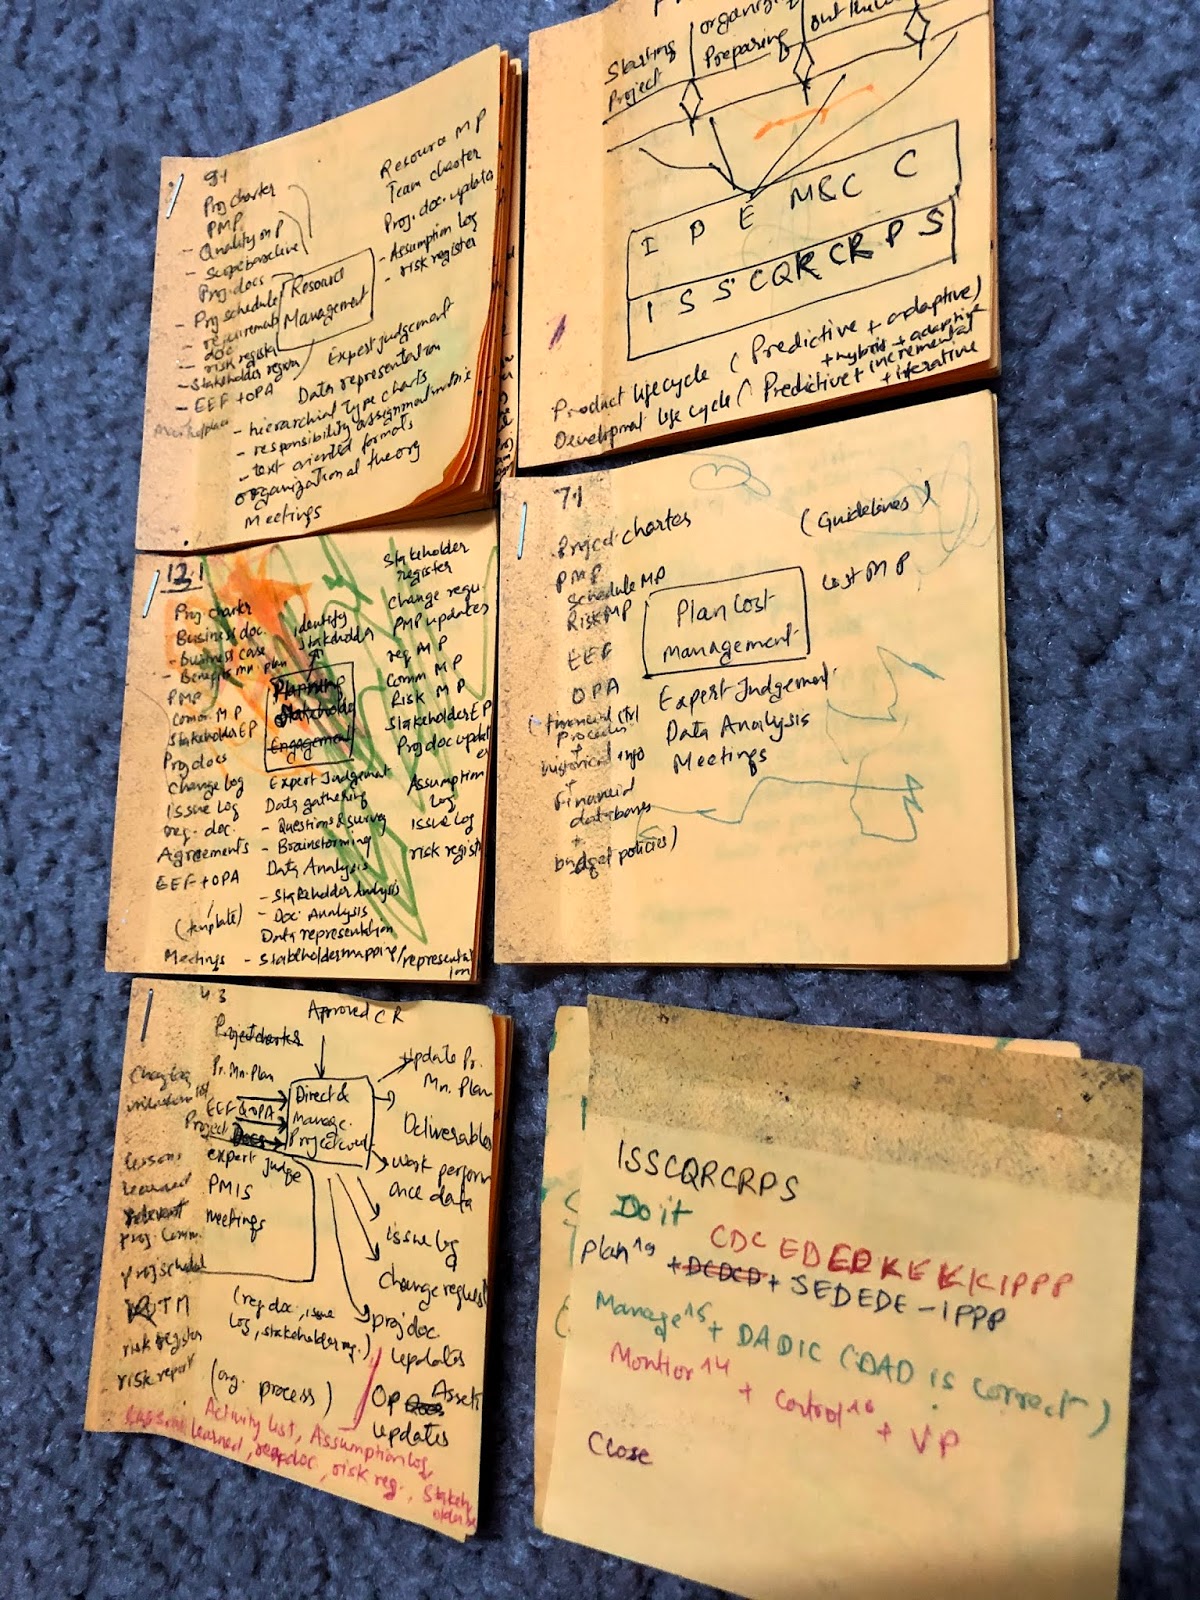 9.1
Proj charter
PMP
- Quality MP
- Scope baseline
Proj. docs
- Proj schedule
- requirements
doc
- risk register
- Stakeholder
- EEF + OPA
Marketplace
Resource
Management
Expert judgement
Data representation
- hierarchial type charts
- responsibility assignment matrix
- text oriented formats
organizational theory
Meetings
Resource MP
Team charter
Proj. doc. update
- Assumption log
- risk register
Starting
Project
Preparing
I P E M&C C
I S S C Q R C R P S
Product lifecycle (Predictive + adaptive)
+ hybrid + adaptive
Development life cycle (Predictive + incremental
+ iterative
12.1
Proj charter
Business doc.
- business case
- Benefits mn. plan
PMP
Comm. MP
Stakeholder EP
Proj docs
change log
Issue log
req. doc.
Agreements
EEF + OPA
(template)
Meetings
identify
stakeholder
Planning
Stakeholder
Engagement
Expert Judgement
Data gathering
- Questions & survey
- Brainstorming
Data Analysis
- Stakeholder Analysis
- Doc. Analysis
Data representation
- Stakeholder mapping/representat
ion
Stakeholder
register
change requ.
PMP updates
req. MP
Comm MP
Risk MP
Stakeholder EP
Proj doc updat
es
Assumption
log
Issue log
risk regist
7.1
Project charter
PMP
Schedule MP
Risk MP
EEF
OPA
(financial ctrl
+
historical info
+
Financial
databases
+
budget policies)
(Guidelines)
Plan Cost
management
Cost MP
Expert Judgement
Data Analysis
Meetings
4.3
Approved CR
Project charter
Pr. Mn. Plan
EEF & OPA
Project Docs
expert judge
PMIS
meetings
Direct &
manage
Project work
update Pr.
Mn. Plan
Deliverables
Work perform
ance data
issue log
change request
proj doc
updates
OP Assets
updates
Lessons
learned
relevant
proj. comm.
proj schedul
RTM
risk register
risk report
(req. doc., issue
log, stakeholder reg.)
(org. process)
Activity list, Assumption log,
Lessons learned, req doc, risk reg., Stakeh
older
ISSCQRCRPS
Do it
CDC EDEDKEKKIPPP
Plan¹⁹ + DCDCD + SEDEDE - IPPP
Manage¹⁵ + DADIC (DAD is correct)
Montior¹⁴ + Control¹⁰ + VP
Close